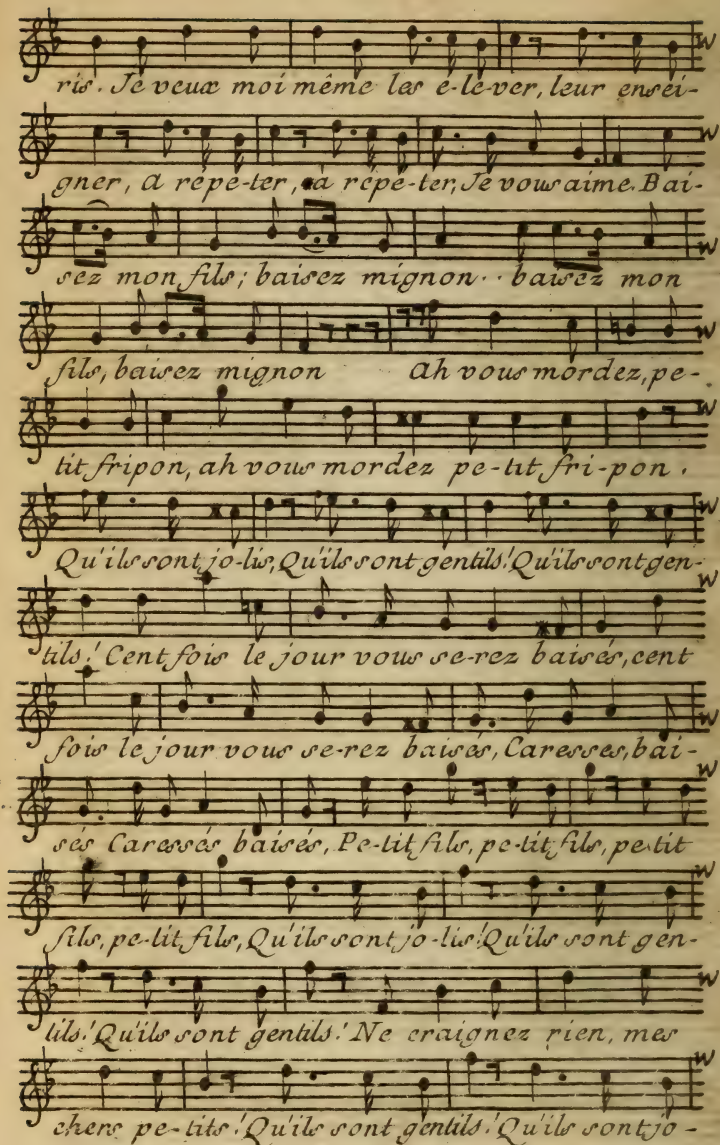 ris. Je veux moi même les é-le-ver, leur ensei-
gner, a répé-ter, à répé-ter, Je vous aime. Bai-
sez mon fils; baisez mignon.. baisez mon
fils, baisez mignon Ah vous mordez, pe-
tit fripon, ah vous mordez pe-tit fri-pon.
Qu'ils sont jo-lis, Qu'ils sont gentils! Qu'ils sont gen-
tils! Cent fois le jour vous se-rez baisés, cent
fois le jour vous se-rez baisés, Caresses, bai-
sés Caressés baisés, Pe-tit fils, pe-tit fils, pe-tit
fils, pe-tit fils, Qu'ils sont jo-lis! Qu'ils sont gen-
tils! Qu'ils sont gentils! Ne craignez rien, mes
chers pe-tits! Qu'ils sont gentils! Qu'ils sont jo-